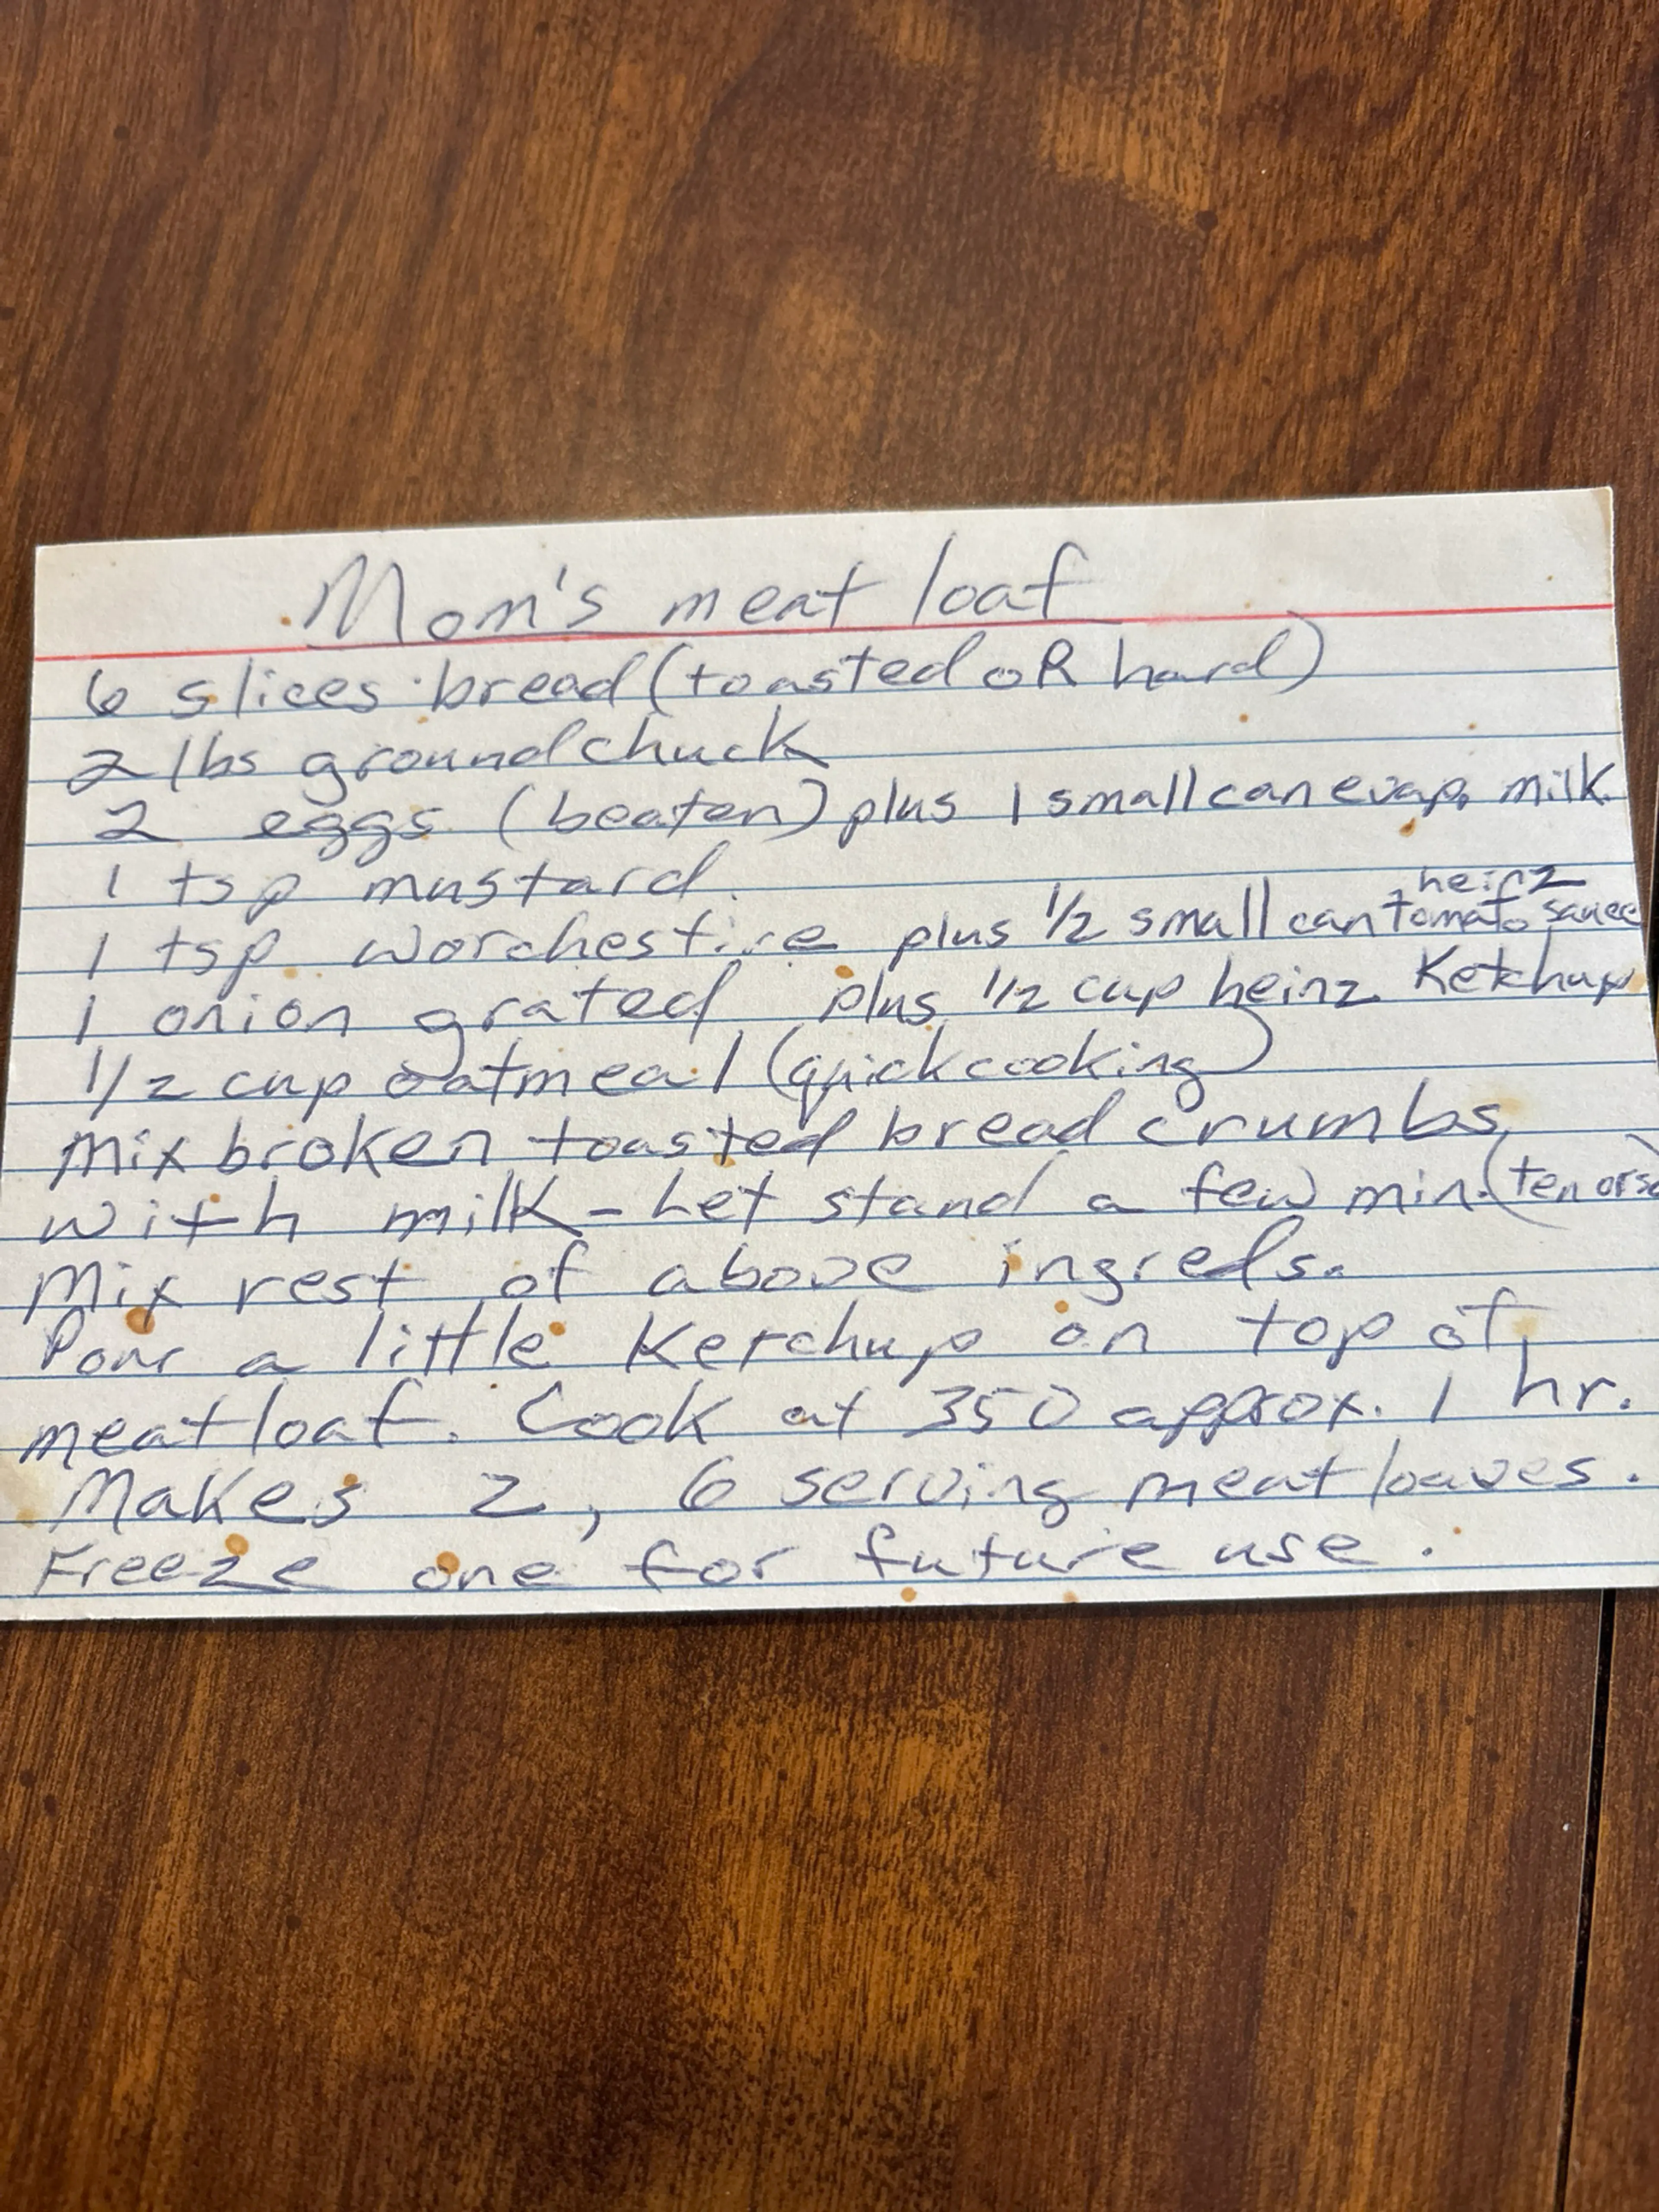 Mom's meat loaf
6 slices bread (toasted oR hard)
2 lbs ground chuck
2 eggs (beaten) plus 1 small can evap. milk
1 tsp mustard
1 tsp worchestire plus 1/2 small can heinz tomato sauce
1 onion grated plus 1/2 cup heinz Ketchup
1/2 cup oatmeal (quick cooking)
Mix broken toasted bread crumbs
with milk - Let stand a few min. (ten or so)
Mix rest of above ingreds.
Pour a little Ketchup on top of
meatloaf. Cook at 350 approx. 1 hr.
Makes 2, 6 serving meat loaves.
Freeze one for future use.